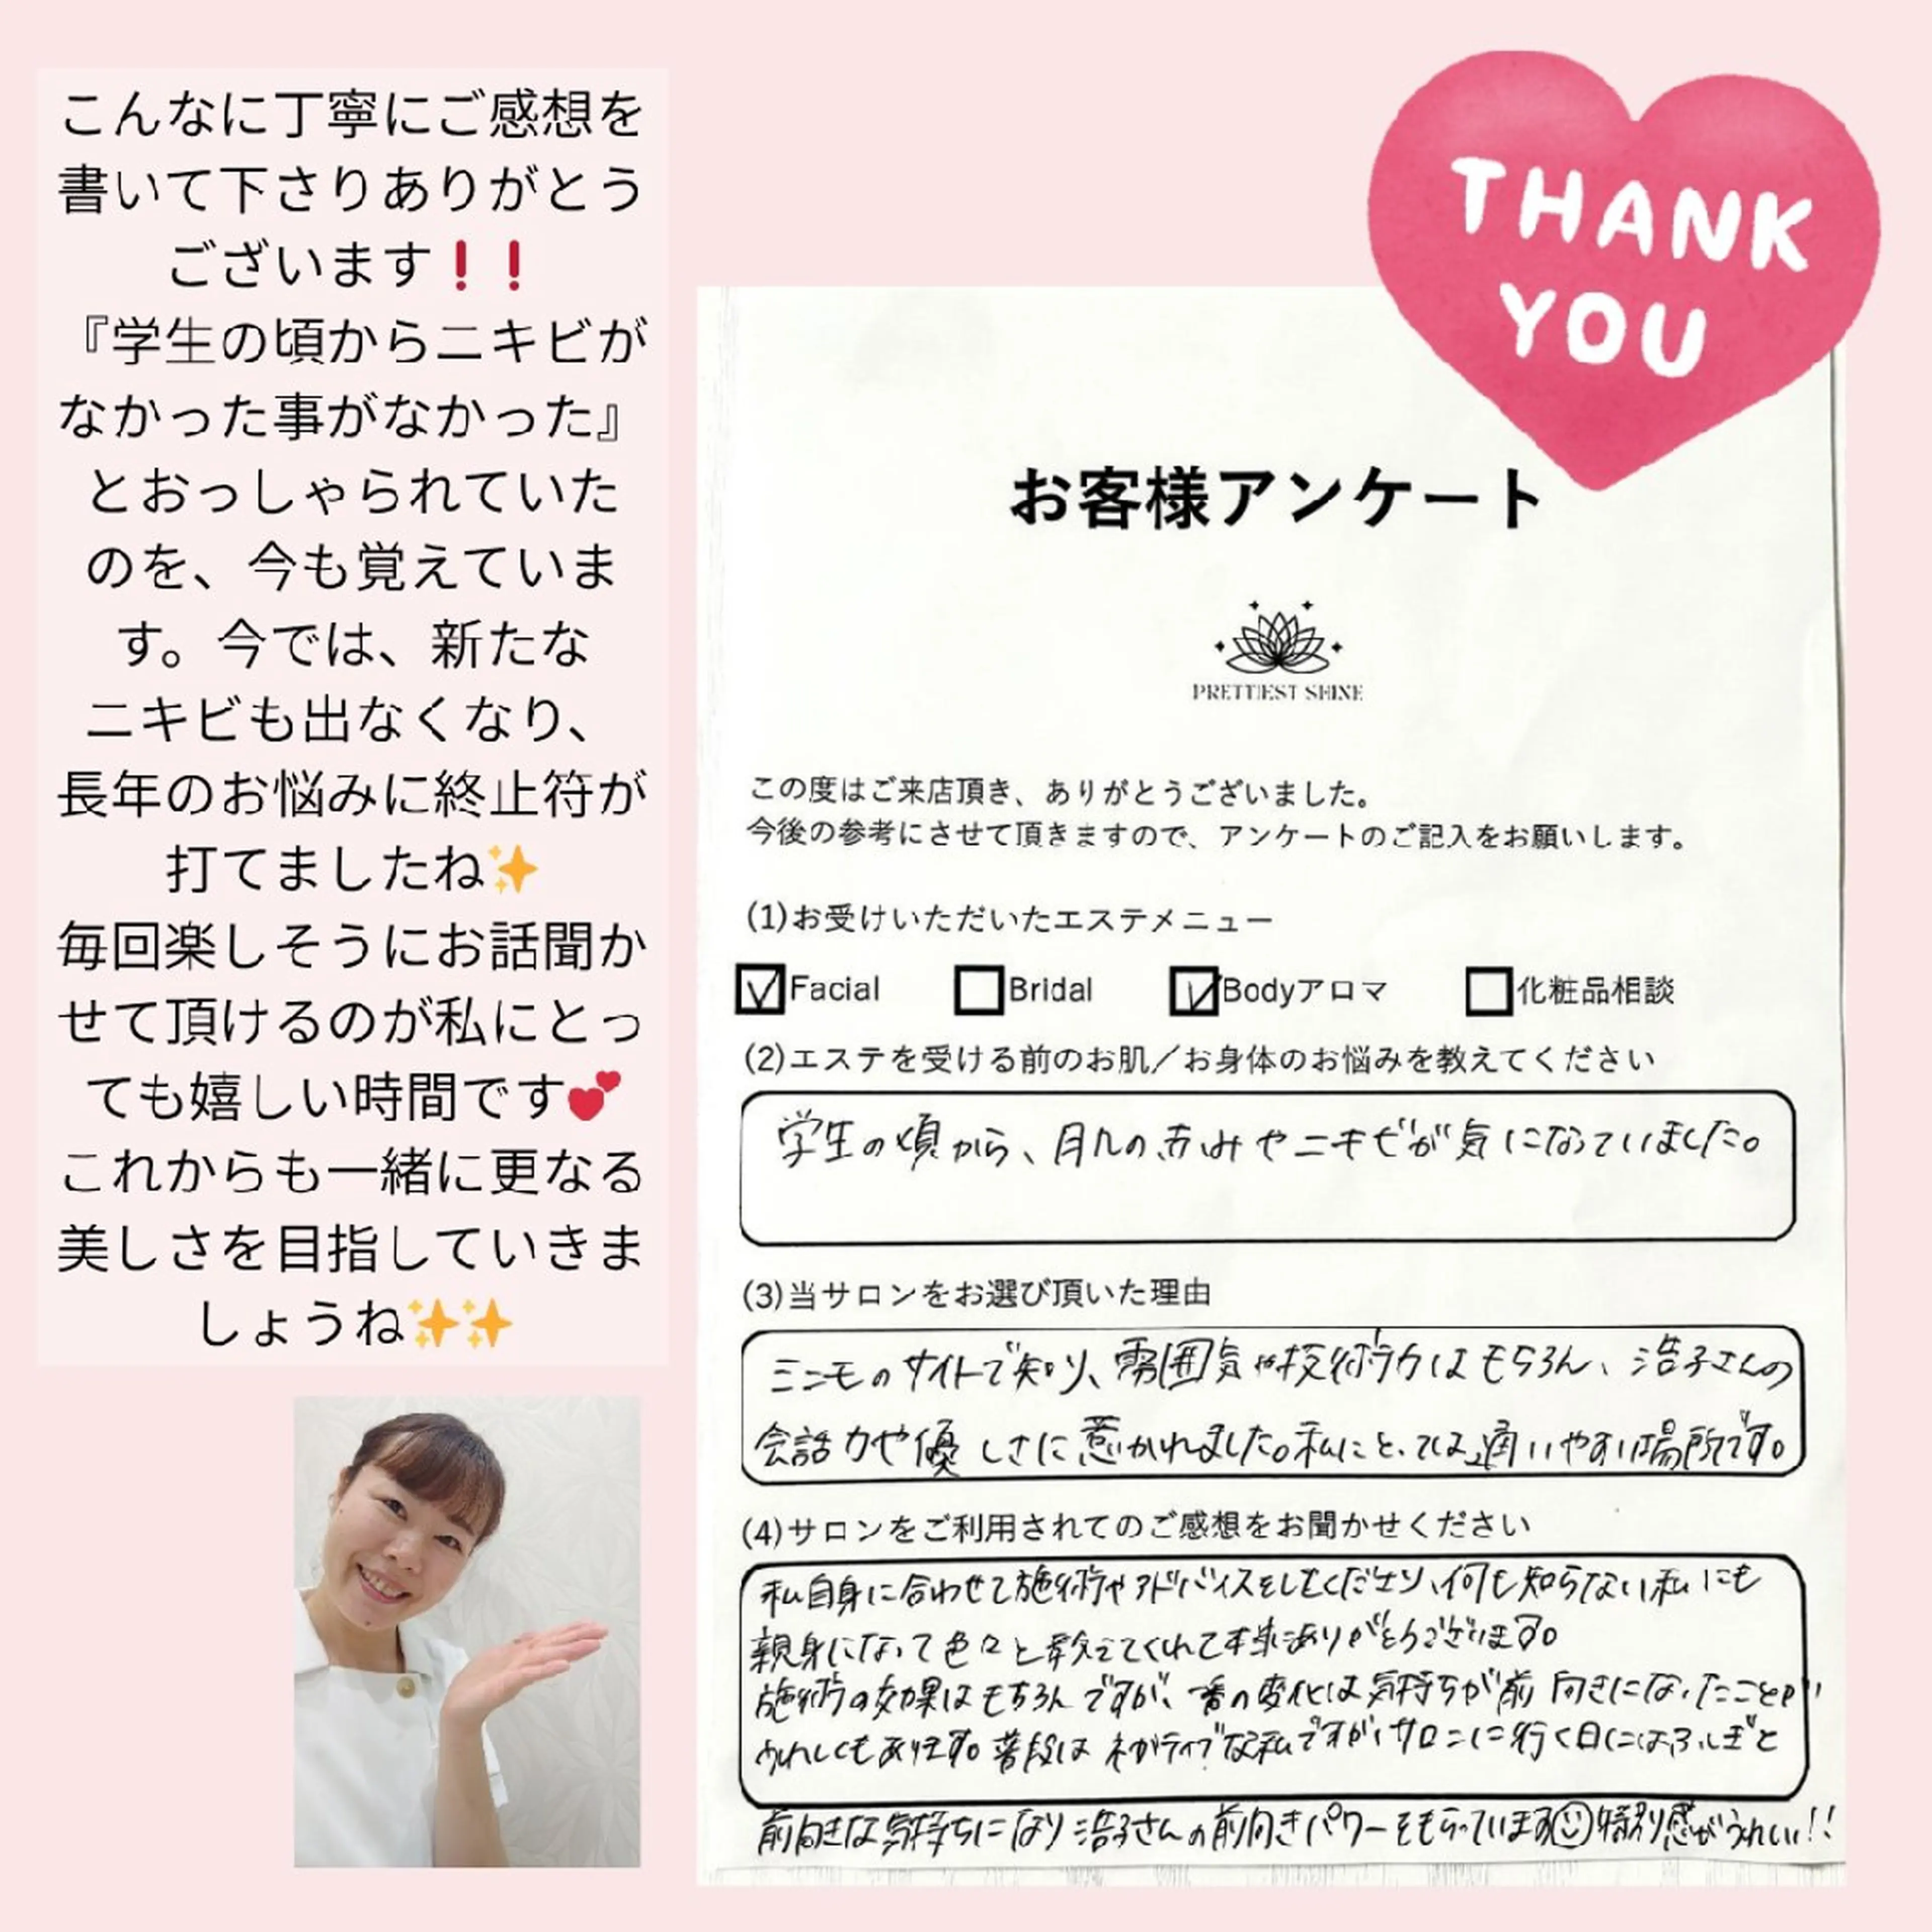 こんなに丁寧にご感想を
書いて下さりありがとう
ございます❗❗
『学生の頃からニキビが
なかった事がなかった』
とおっしゃられていた
のを、今も覚えていま
す。今では、新たな
ニキビも出なくなり、
長年のお悩みに終止符が
打てましたね✨
毎回楽しそうにお話聞か
せて頂けるのが私にとっ
ても嬉しい時間です💕
これからも一緒に更なる
美しさを目指していきま
しょうね✨✨
THANK
YOU
お客様アンケート
PRETTIEST SHINE
この度はご来店頂き、ありがとうございました。
今後の参考にさせて頂きますので、アンケートのご記入をお願いします。
(1)お受けいただいたエステメニュー
Facial Bridal Bodyアロマ 化粧品相談
(2)エステを受ける前のお肌／お身体のお悩みを教えてください
学生の頃から、肌の赤みやニキビが気になっていました。
(3)当サロンをお選び頂いた理由
ミニモのサイトで知り、雰囲気や技術力はもちろん、浩子さんの
会話力や優しさに惹かれました。私にとっては、通いやすい場所です。
(4)サロンをご利用されてのご感想をお聞かせください
私自身に合わせて施術やアドバイスをしてくださり、何も知らない私にも
親身になって色々と教えてくれて本当にありがとうございます。
施術の効果はもちろんですが、一番の変化は気持ちが前向きになったことが
うれしくもあります。普段はネガティブな私ですが、サロンに行く日にはふしぎと
前向きな気持ちになり浩子さんの前向きパワーをもらっています☺特別感がうれしい!!